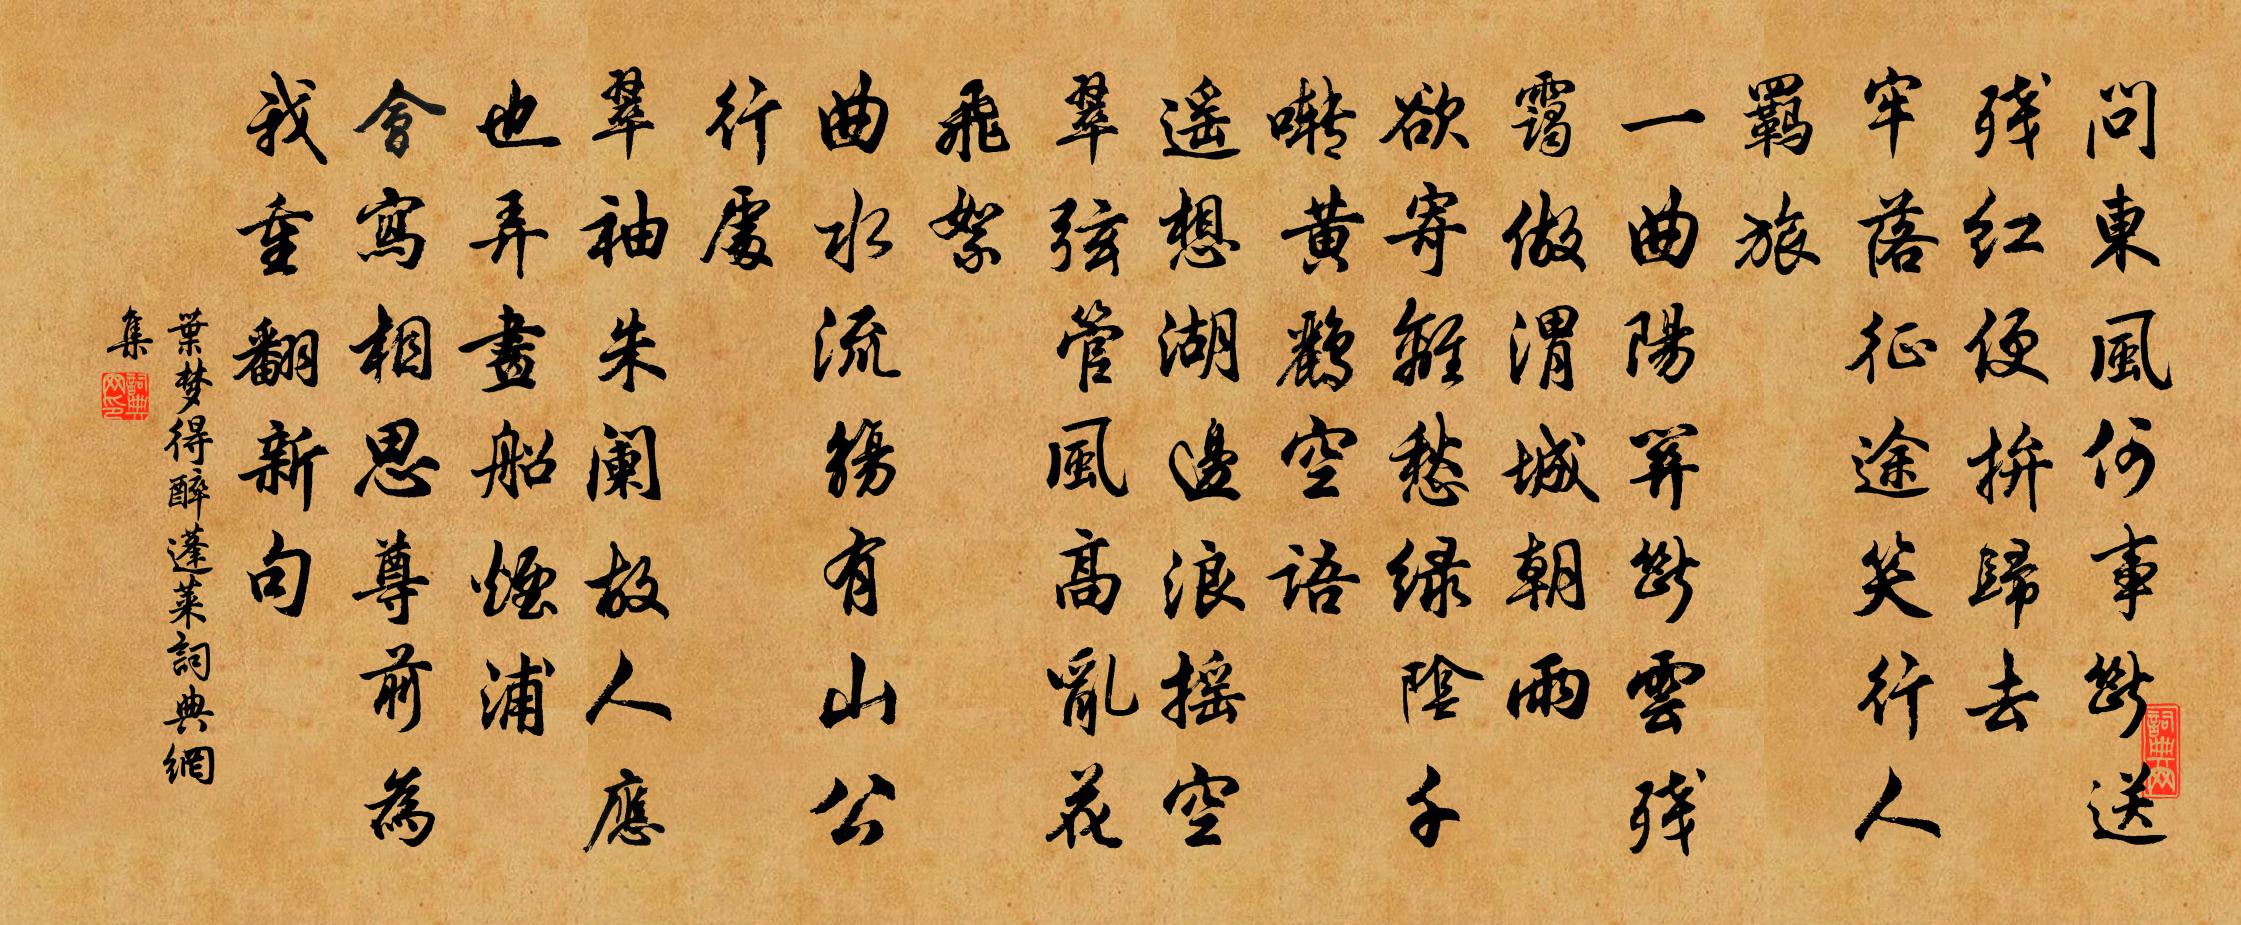 問東風何事斷送
残红便拚歸去
牢落征途笑行人
羈旅
一曲陽関斷雲残
靄做渭城朝雨
欲寄離愁緑陰千
囀黄鸝空語
遥想湖邊浪摇空
翠弦管風高亂花
飛絮
曲水流觴有山公
行處
翠袖朱阑故人應
也弄畫船煙浦
會寫相思尊前為
我重翻新句
葉梦得醉蓬莱詞典網
集
詞典网印
詞典网